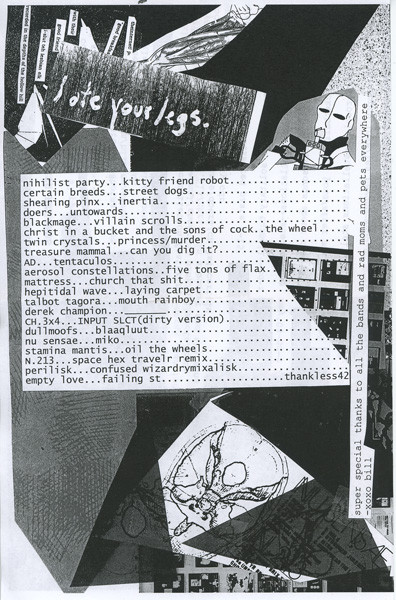 I ate your legs.
nihilist party...kitty friend robot....................
certain breeds...street dogs...........................
shearing pinx...inertia................................
doers...untowards......................................
blackmage...villain scrolls............................
christ in a bucket and the sons of cock..the wheel.....
twin crystals...princess/murder........................
treasure mammal...can you dig it?......................
AD...tentaculos........................................
aerosol constellations..five tons of flax..............
mattress...church that shit............................
hepitidal wave...laying carpet.........................
talbot tagora...mouth rainboy..........................
derek champion...__________............................
CH.3x4...INPUT SLCT(dirty version).....................
dullmoofs...blaaqluut..................................
nu sensae...miko.......................................
stamina mantis...oil the wheels........................
N.213...space hex travelr remix........................
perilisk...confused wizardrymixalisk...................
empty love...failing st....................thankless42
super special thanks to all the bands and rad moms and pets everywhere
-xoxo bill